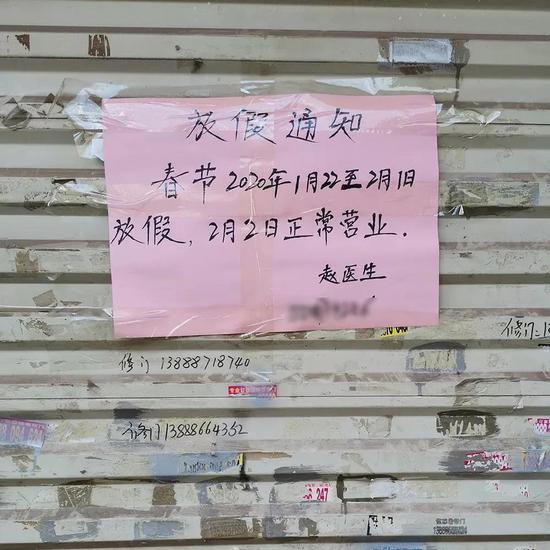 放假通知
春节2020年1月22至2月1日
放假，2月2日正常营业.
赵医生
修门:1
修门 13888718740
修门13888664352
247